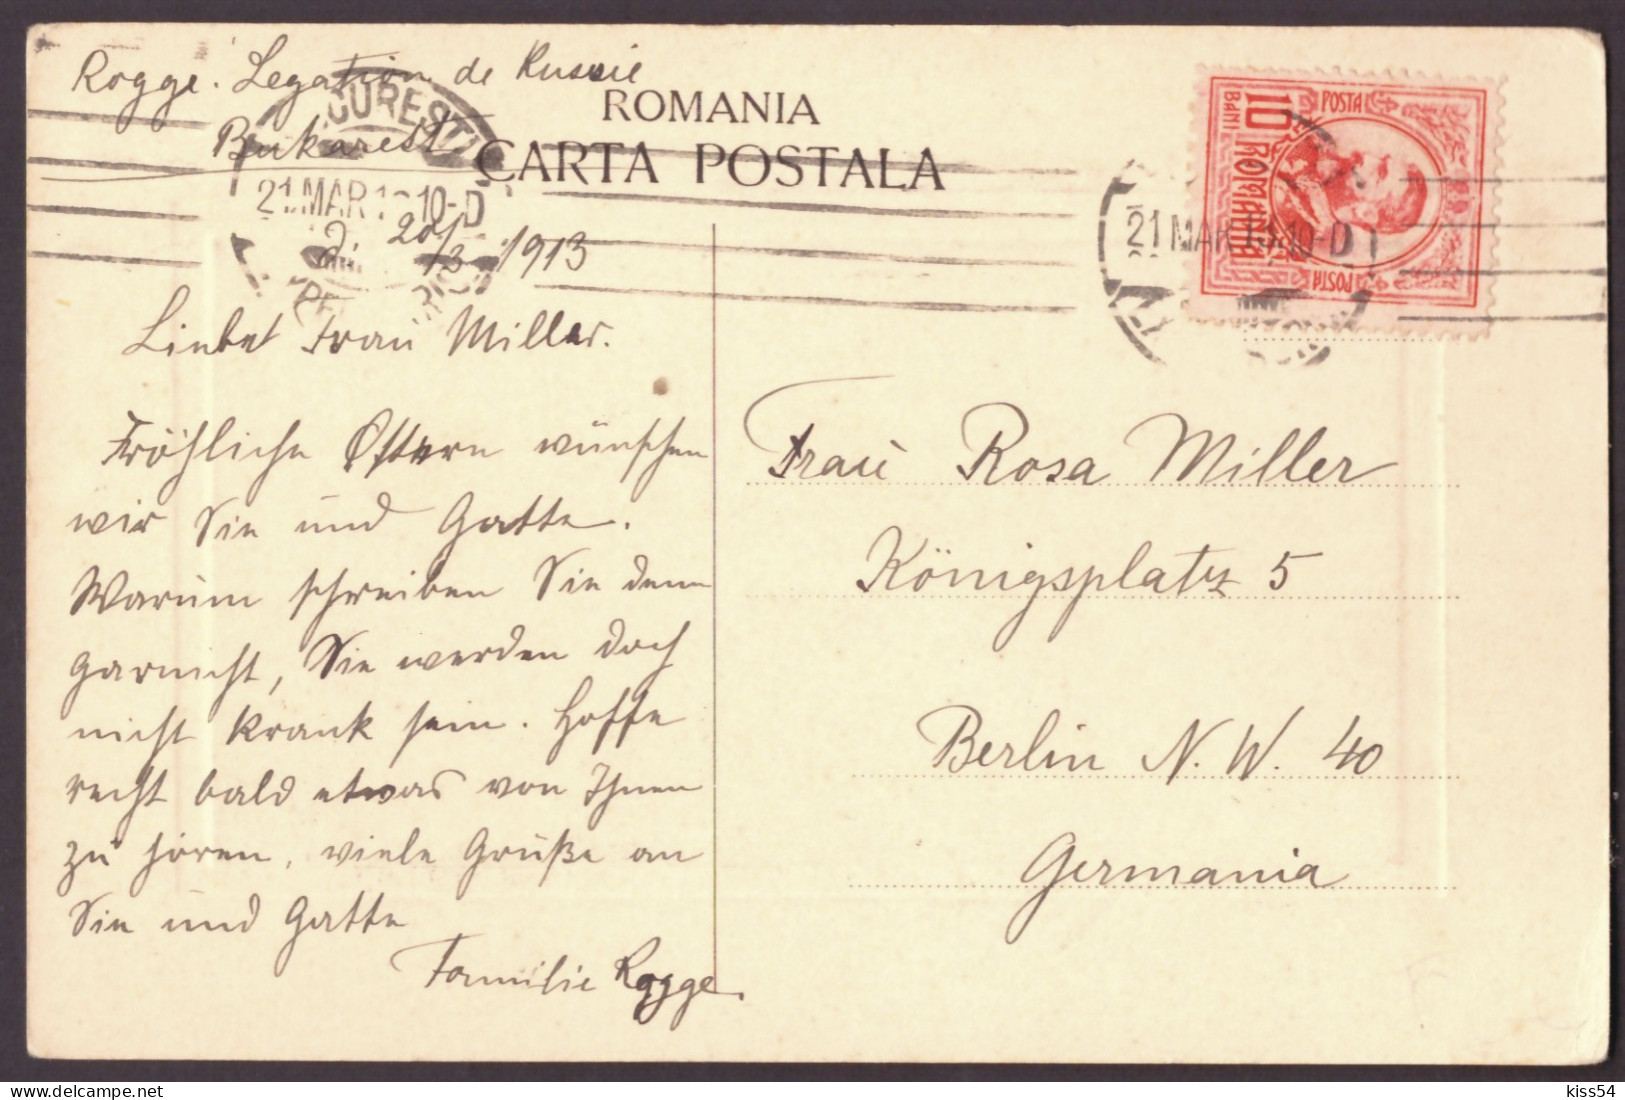 Rogge. Legation de Russie
Bukarest
ROMANIA
CARTA POSTALA
BUCUREȘTI
21 MAR 13 10-D
d. 20/3 1913
Liebe Frau Miller.
Fröhliche Ostern wünschen
wir Sie und Gatte.
Warum schreiben Sie denn
garnicht, Sie werden doch
nicht krank sein. Hoffe
recht bald etwas von Ihnen
zu hören, viele Grüße an
Sie und Gatte
Familie Rogge.
POSTA
10 BANI
ROMANIA
POSTA
21 MAR 13 10-D
Frau Rosa Miller
Königsplatz 5
Berlin N.W. 40
Germania
kiss54